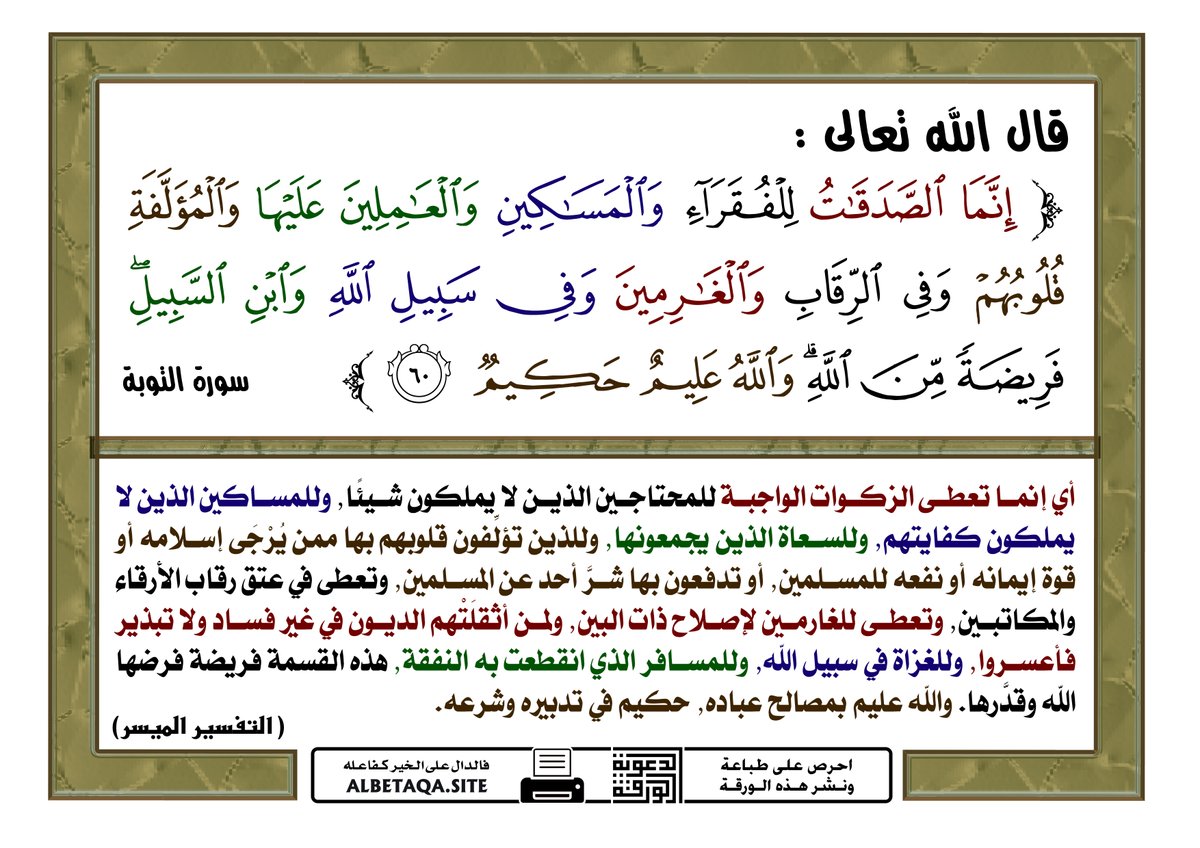 قال الله تعالى :
﴿ إِنَّمَا ٱلصَّدَقَٰتُ لِلۡفُقَرَآءِ وَٱلۡمَسَٰكِينِ وَٱلۡعَٰمِلِينَ عَلَيۡهَا وَٱلۡمُؤَلَّفَةِ
قُلُوبُهُمۡ وَفِي ٱلرِّقَابِ وَٱلۡغَٰرِمِينَ وَفِي سَبِيلِ ٱللَّهِ وَٱبۡنِ ٱلسَّبِيلِۖ
فَرِيضَةٗ مِّنَ ٱللَّهِۗ وَٱللَّهُ عَلِيمٌ حَكِيمٞ ٦٠ ﴾ سورة التوبة
أي إنما تعطى الزكوات الواجبة للمحتاجين الذين لا يملكون شيئًا, وللمساكين الذين لا
يملكون كفايتهم, وللسعاة الذين يجمعونها, وللذين تؤلِّفون قلوبهم بها ممن يُرْجَى إسلامه أو
قوة إيمانه أو نفعه للمسلمين, أو تدفعون بها شرَّ أحد عن المسلمين, وتعطى في عتق رقاب الأرقاء
والمكاتبين, وتعطى للغارمين لإصلاح ذات البين, ولمن أثقلَتْهم الديون في غير فساد ولا تبذير
فأعسروا, وللغزاة في سبيل الله, وللمسافر الذي انقطعت به النفقة, هذه القسمة فريضة فرضها
الله وقدَّرها. والله عليم بمصالح عباده, حكيم في تدبيره وشرعه.
(التفسير الميسر)
احرص على طباعة
ونشر هذه الورقة
الدعوية
الورقة
فالدال على الخير كفاعله
ALBETAQA.SITE